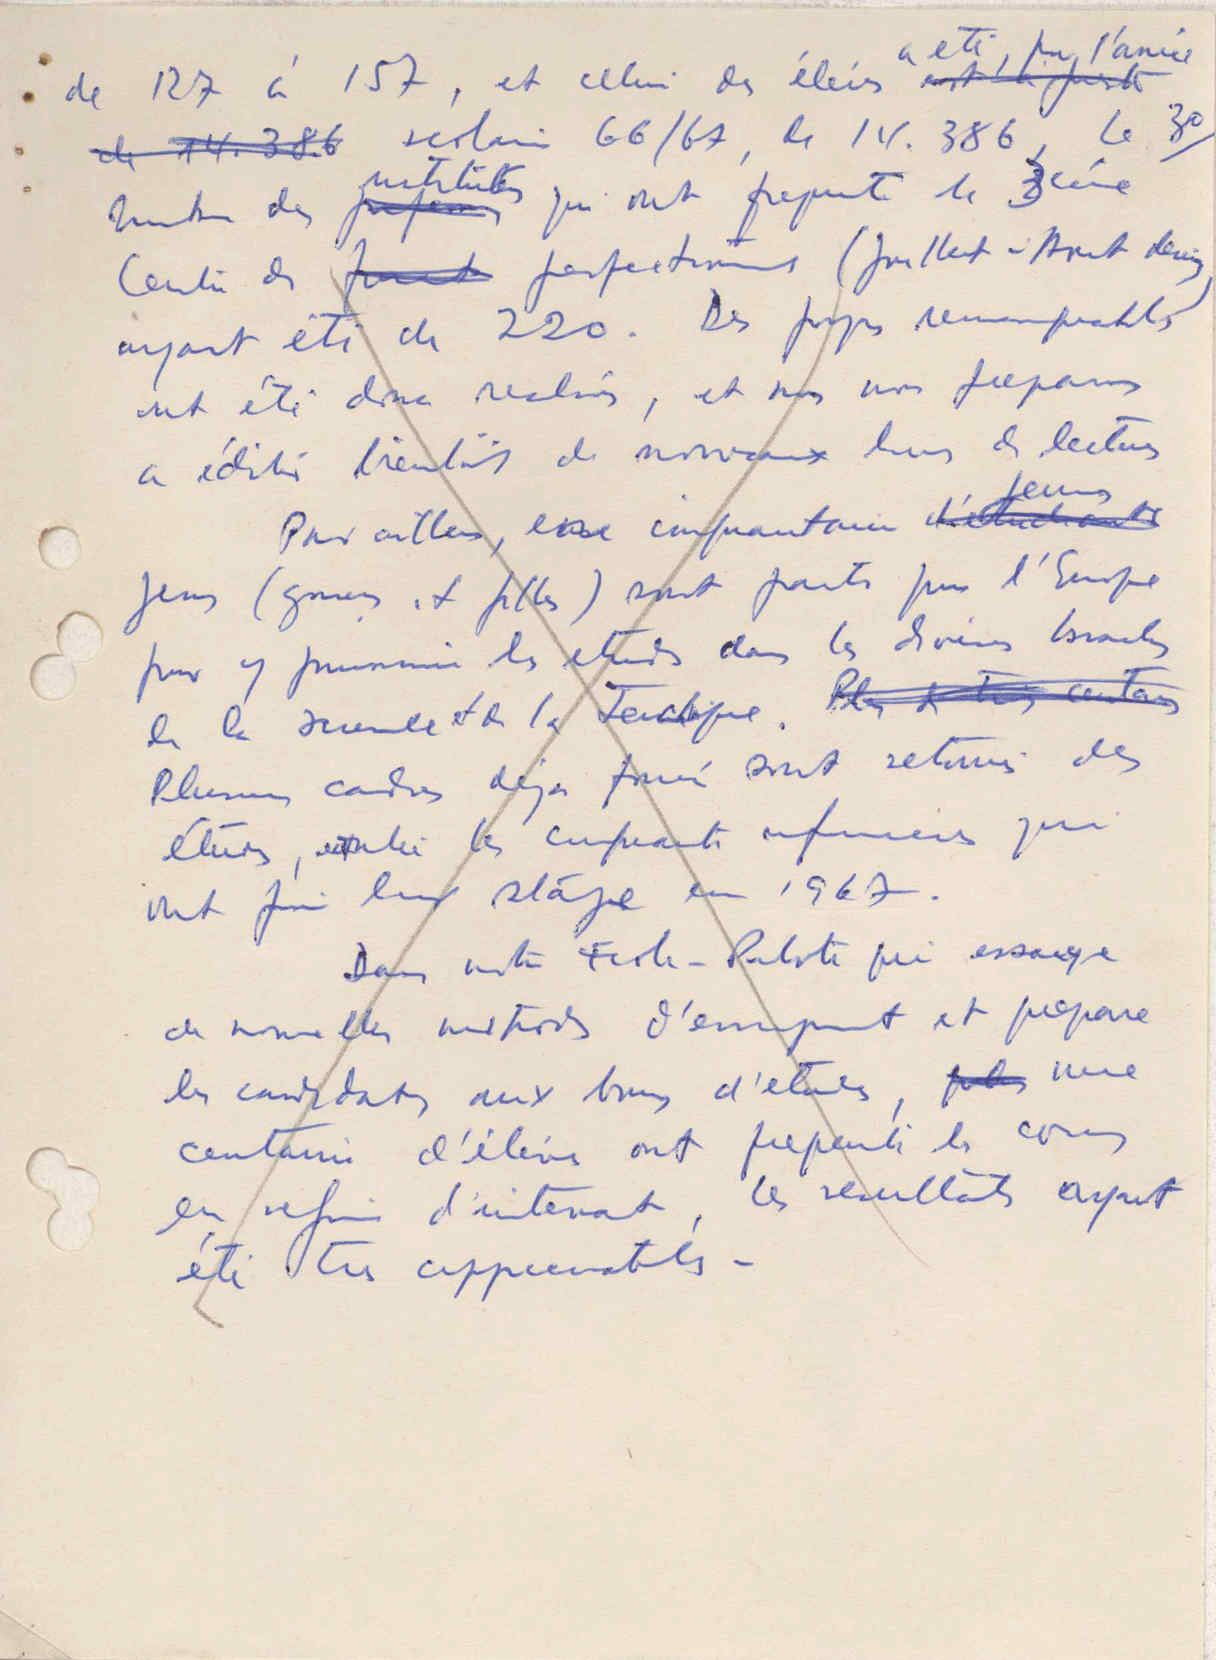 de 127 à 157, et celui des élèves a été, pour l'année
de 14.386 scolaire 66/67, de 14.386, le 30/
nombre des instituteurs qui ont frequenté le 3ème
Centre de perfectionnement (Juillet-Aout dernier)
ayant été de 220. Des progrès remarquables
ont été donc realisés, et nous nous preparons
a éditer bientôt de nouveaux livres de lectures
Par ailleurs, une cinquantaine d'étudiants jeunes
jeunes (garçons et filles) sont partis pour l'Europe
pour y poursuivre les etudes dans les diverses branches
de la science et de la Technique. Plus de trois centaines
Plusieurs cadres déja formés sont retournés des
études, outre les cinquante infirmiers qui
ont fini leur stage en 1967.
Dans notre Ecole-Pilote qui essaye
de nouvelles methodes d'enseignement et prepare
les candidats aux bourses d'etudes, plus une
centaine d'élèves ont frequenté les cours
en regime d'internat, les resultats ayant
été très appreciables -